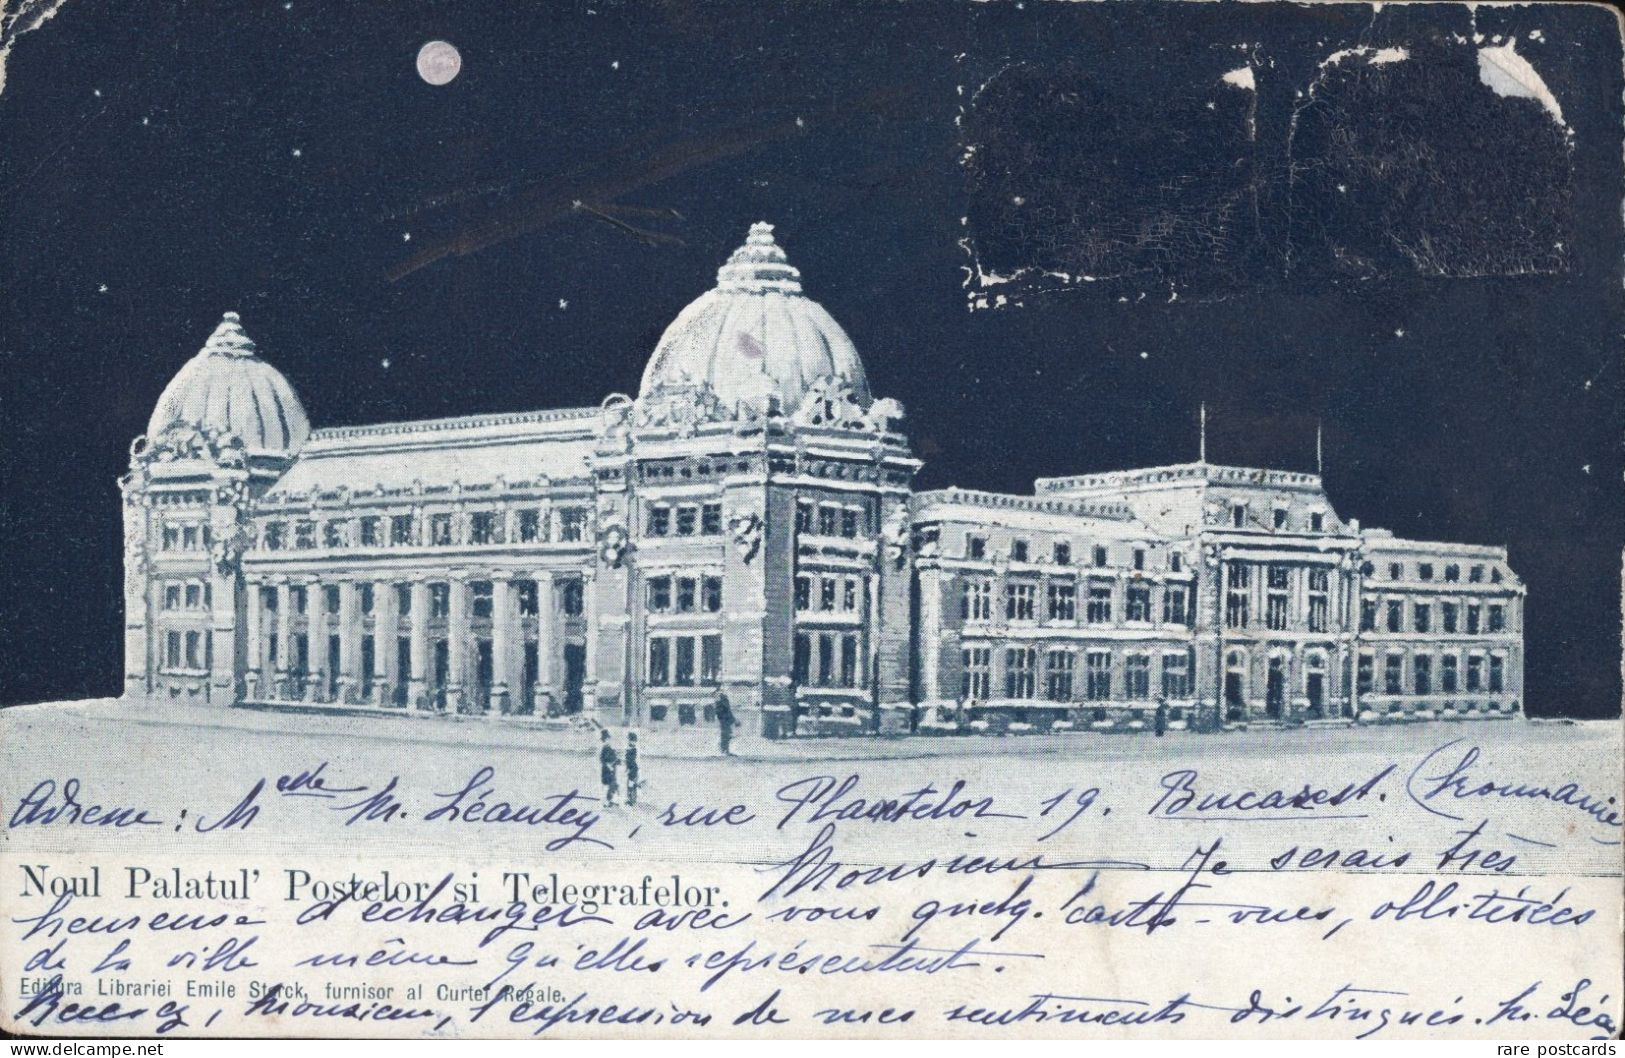 Adresse : Mede M. Léautey, rue Plantelor 19. Bucarest. (Roumanie
Noul Palatul' Postelor si Telegrafelor.
Monsieur Je serais très
heureuse d'échanger avec vous quelq. cartes-vues, oblitérées
de la ville même qu'elles représentent.
Editura Librariei Emile Storck, furnisor al Curtei Regale.
Recevez, Monsieur, l'expression de mes sentiments distingués. M. Léa
© delcampe.net
rare postcards